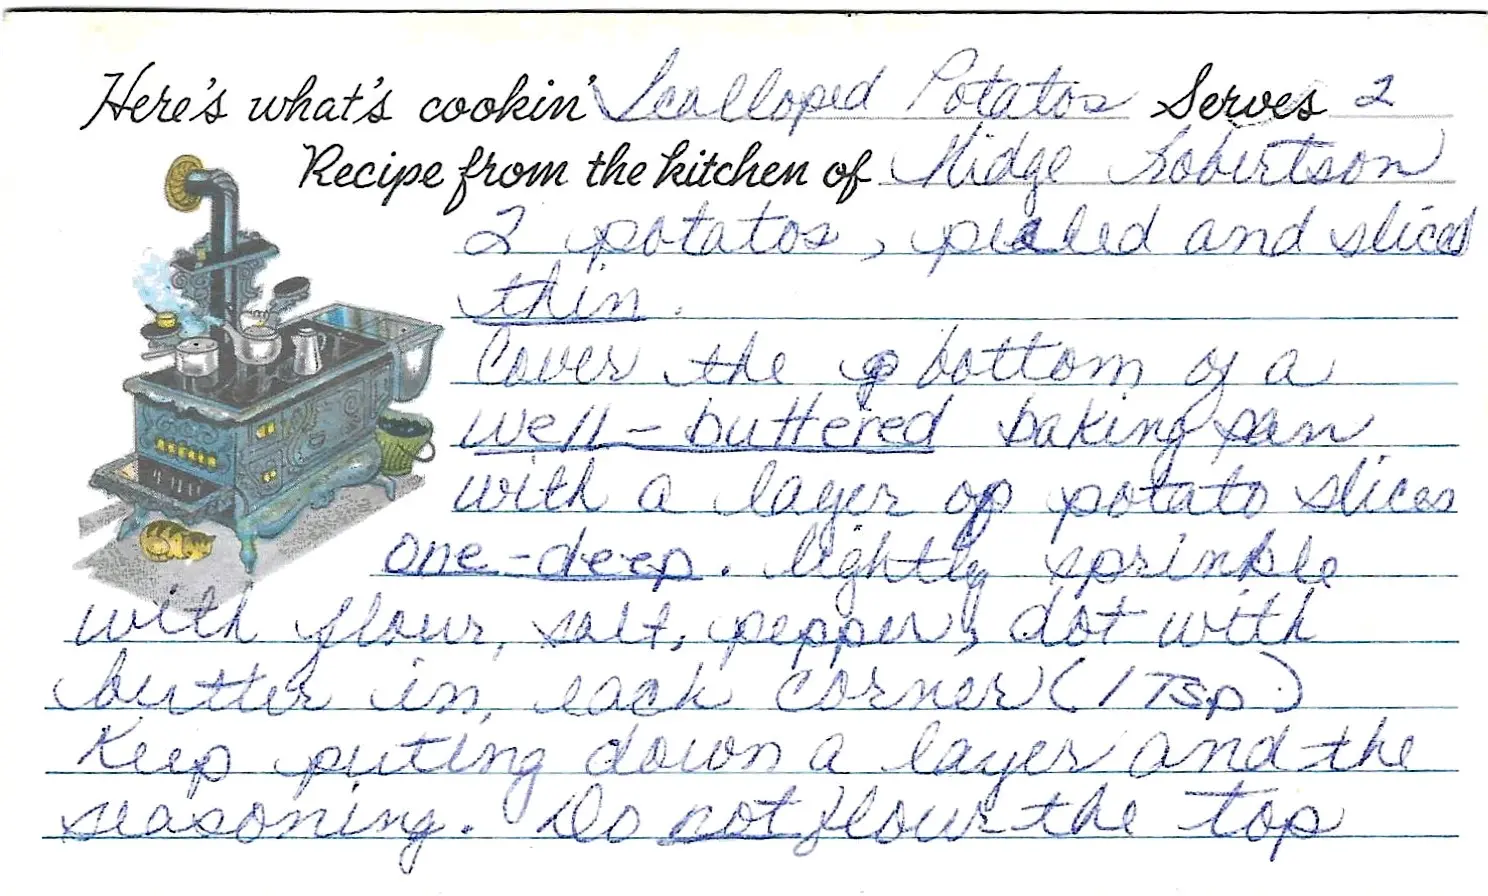 Here's what's cookin' Scalloped Potatos Serves 2
Recipe from the kitchen of Midge Robertson
2 potatos, pealed and slices
thin.
Cover the bottom of a
well-buttered baking pan
with a layer of potato slices
one-deep. lightly sprinkle
with flour, salt, pepper, dot with
butter in each corner (1 Tsp.)
Keep puting down a layer and the
seasoning. Do not flour the top